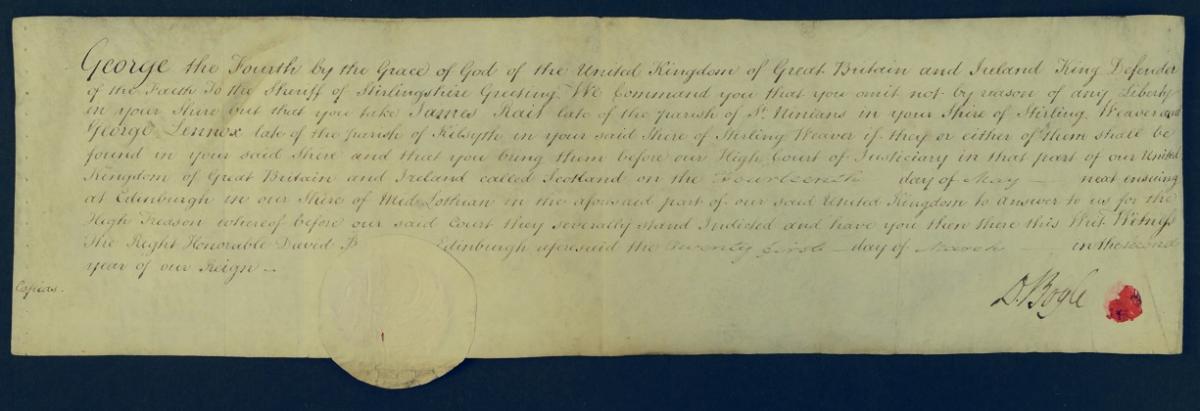 George the Fourth by the Grace of God of the United Kingdom of Great Britain and Ireland King Defender
of the Faith To the Sheriff of Stirlingshire Greeting We Command you that you omit not by reason of any Liberty
in your Shire but that you take James Rait late of the parish of St. Ninians in your Shire of Stirling Weaver and
George Lennox late of the parish of Kilsyth in your said Shire of Stirling Weaver if they or either of them shall be
found in your said Shire and that you bring them before our High Court of Justiciary in that part of our United
Kingdom of Great Britain and Ireland called Scotland on the Fourteenth day of May next ensuing
at Edinburgh in our Shire of Mid Lothian in the aforesaid part of our said United Kingdom to answer to us for the
High Treason whereof before our said Court they severally stand Indicted and have you then there this Writ. Witness
The Right Honorable David B Edinburgh aforesaid the twenty first day of March in the second
year of our Reign
Capias.
D. Boyle